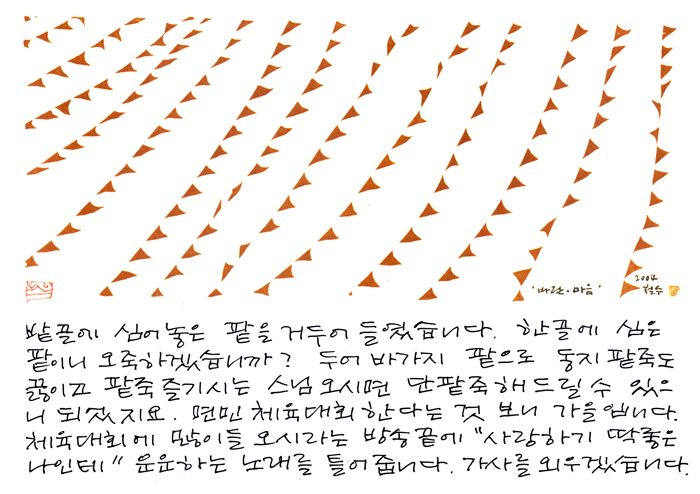 2004
'바람-마음' 철수
밭골에 심어놓은 팥을 거두어 들였습니다. 한골에 심은
팥이니 오죽하겠습니까? 두어 바가지 팥으로 동지 팥죽도
끓이고 팥죽 즐기시는 스님 오시면 단팥죽 해 드릴 수 있으
니 되었지요. 면민 체육대회 한다는 것 보니 가을입니다.
체육대회에 많이들 오시라는 방송끝에 "사랑하기 딱좋은
나인데" 운운하는 노래를 틀어줍니다. 가사를 외우겠습니다.